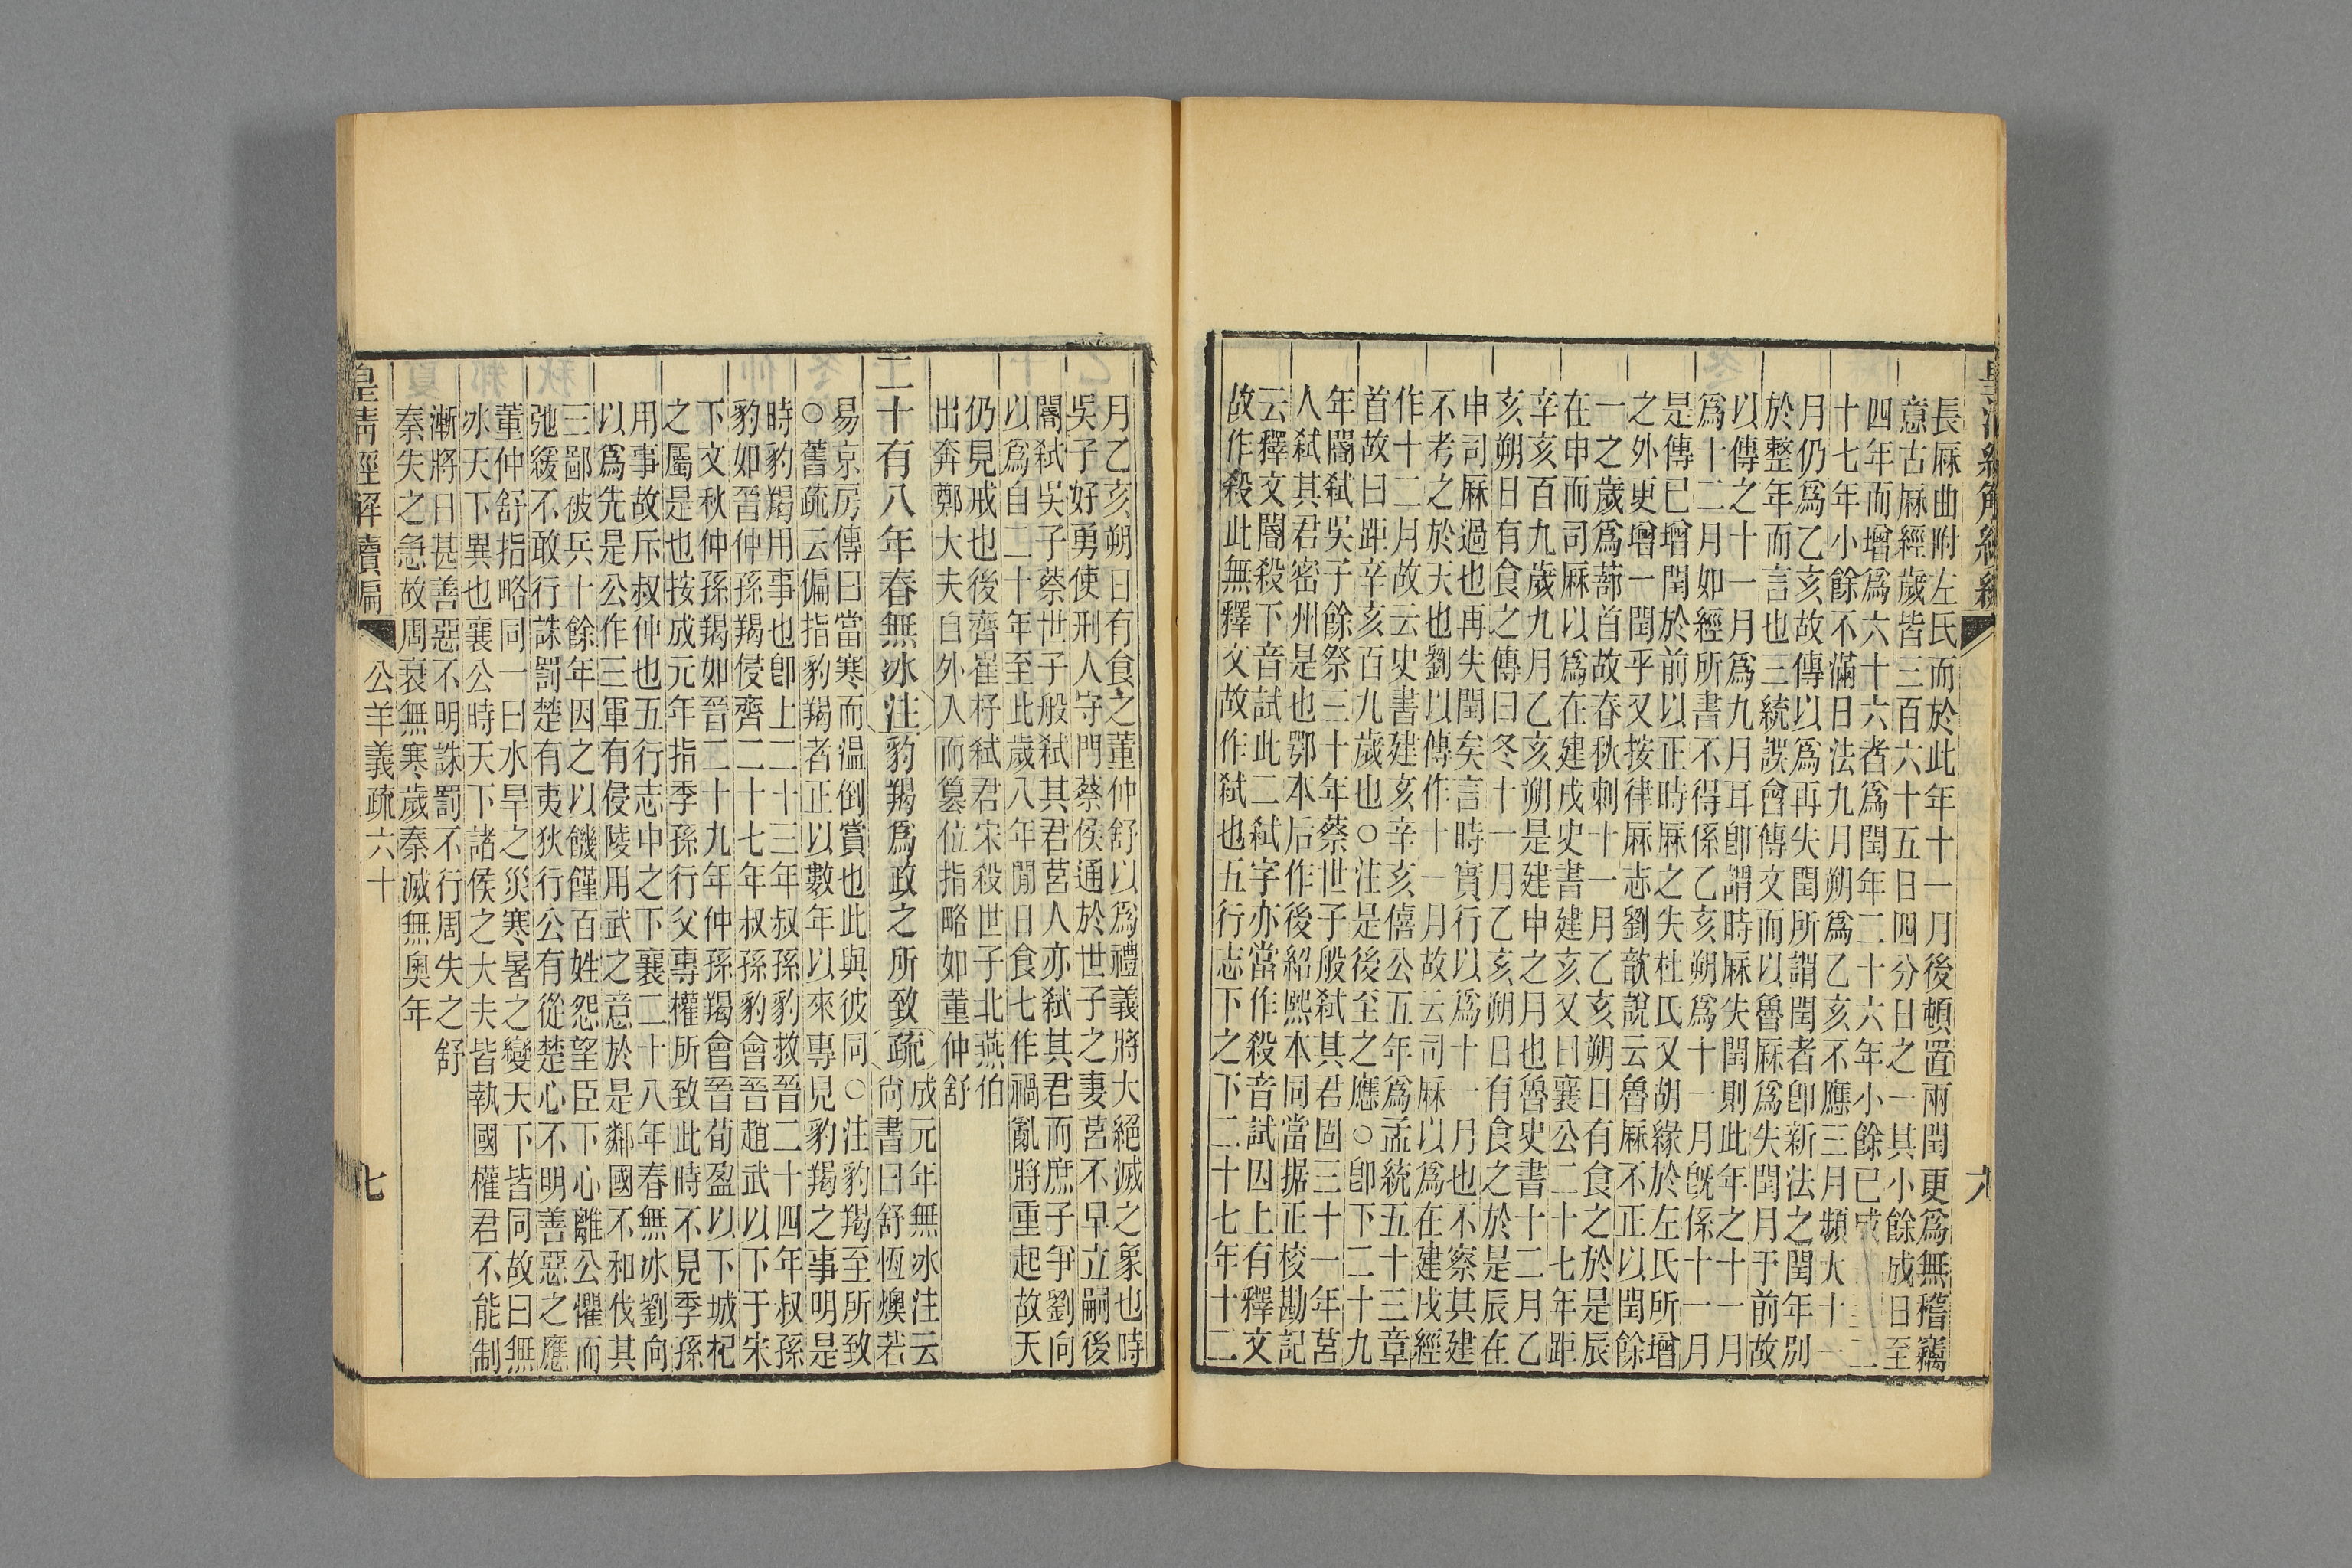 皇清經解續編
長厤曲附左氏而於此年十一月後頓置兩閏更爲無稽竊
意古厤經歲皆三百六十五日四分日之一其小餘成日至
四年而增爲六十六者爲閏年二十六年小餘已成 二
十七年小餘不滿日法九月朔爲乙亥不應三月頻大十一
月仍爲乙亥故傳以爲再失閏所謂閏者卽新法之閏年別
於整年而言也三統誤會傳文而以魯厤爲失閏月于前故
以傳之十一月爲九月耳卽謂時厤失閏則此年之十一月
爲十二月如經所書不得係乙亥朔爲十一月旣係十一月
是傳已增閏於前以正時厤之失杜氏又胡緣於左氏所增
之外更增一閏乎又按律厤志劉歆說云魯厤不正以閏餘
一之歲爲蔀首故春秋刺十一月乙亥朔日有食之於是辰
在申而司厤以爲在建戌史書建亥又曰襄公二十七年距
辛亥百九歲九月乙亥朔是建申之月也魯史書十二月乙
亥朔日有食之傳曰冬十一月乙亥朔日有食之於是辰在
申司厤過也再失閏矣言時實行以爲十一月也不察其建
不考之於天也劉以傳作十一月故云司厤以爲在建戌經
作十二月故云史書建亥辛亥僖公五年爲孟統五十三章
首故曰距辛亥百九歲也○注是後至之應○卽下二十九
年閽弒吳子餘祭三十年蔡世子般弒其君固三十一年莒
人弒其君密州是也鄂本后作後紹熙本同當据正校勘記
云釋文閽殺下音試此二弒字亦當作殺音試因上有釋文
故作殺此無釋文故作弒也五行志下之下二十七年十二
月乙亥朔日有食之董仲舒以爲禮義將大絕滅之象也時
吳子好勇使刑人守門蔡侯通於世子之妻莒不早立嗣後
閽弒吳子蔡世子般弒其君莒人亦弒其君而庶子爭劉向
以爲自二十年至此歲八年閒日食七作禍亂將重起故天
仍見戒也後齊崔杼弒君宋殺世子北燕伯
出奔鄭大夫自外入而篡位指略如董仲舒
二十有八年春無冰注豹羯爲政之所致疏成元年無冰注云
尚書曰舒恆燠若
易京房傳曰當寒而温倒賞也此與彼同○注豹羯至所致
○舊疏云偏指豹羯者正以數年以來專見豹羯之事明是
時豹羯用事也卽上二十三年叔孫豹救晉二十四年叔孫
豹如晉仲孫羯侵齊二十七年叔孫豹會晉趙武以下于宋
下文秋仲孫羯如晉二十九年仲孫羯會晉荀盈以下城杞
之屬是也按成元年指季孫行父專權所致此時不見季孫
用事故斥叔仲也五行志中之下襄二十八年春無冰劉向
以爲先是公作三軍有侵陵用武之意於是鄰國不和伐其
三鄙彼兵十餘年因之以饑饉百姓怨望臣下心離公懼而
弛緩不敢行誅罰楚有夷狄行公有從楚心不明善惡之應
董仲舒指略同一曰水旱之災寒暑之變天下皆同故曰無
冰天下異也襄公時天下諸侯之大夫皆執國權君不能制
漸將日甚善惡不明誅罰不行周失之舒
秦失之急故周衰無寒歲秦滅無奧年
皇清經解續編
公羊義疏六十
七